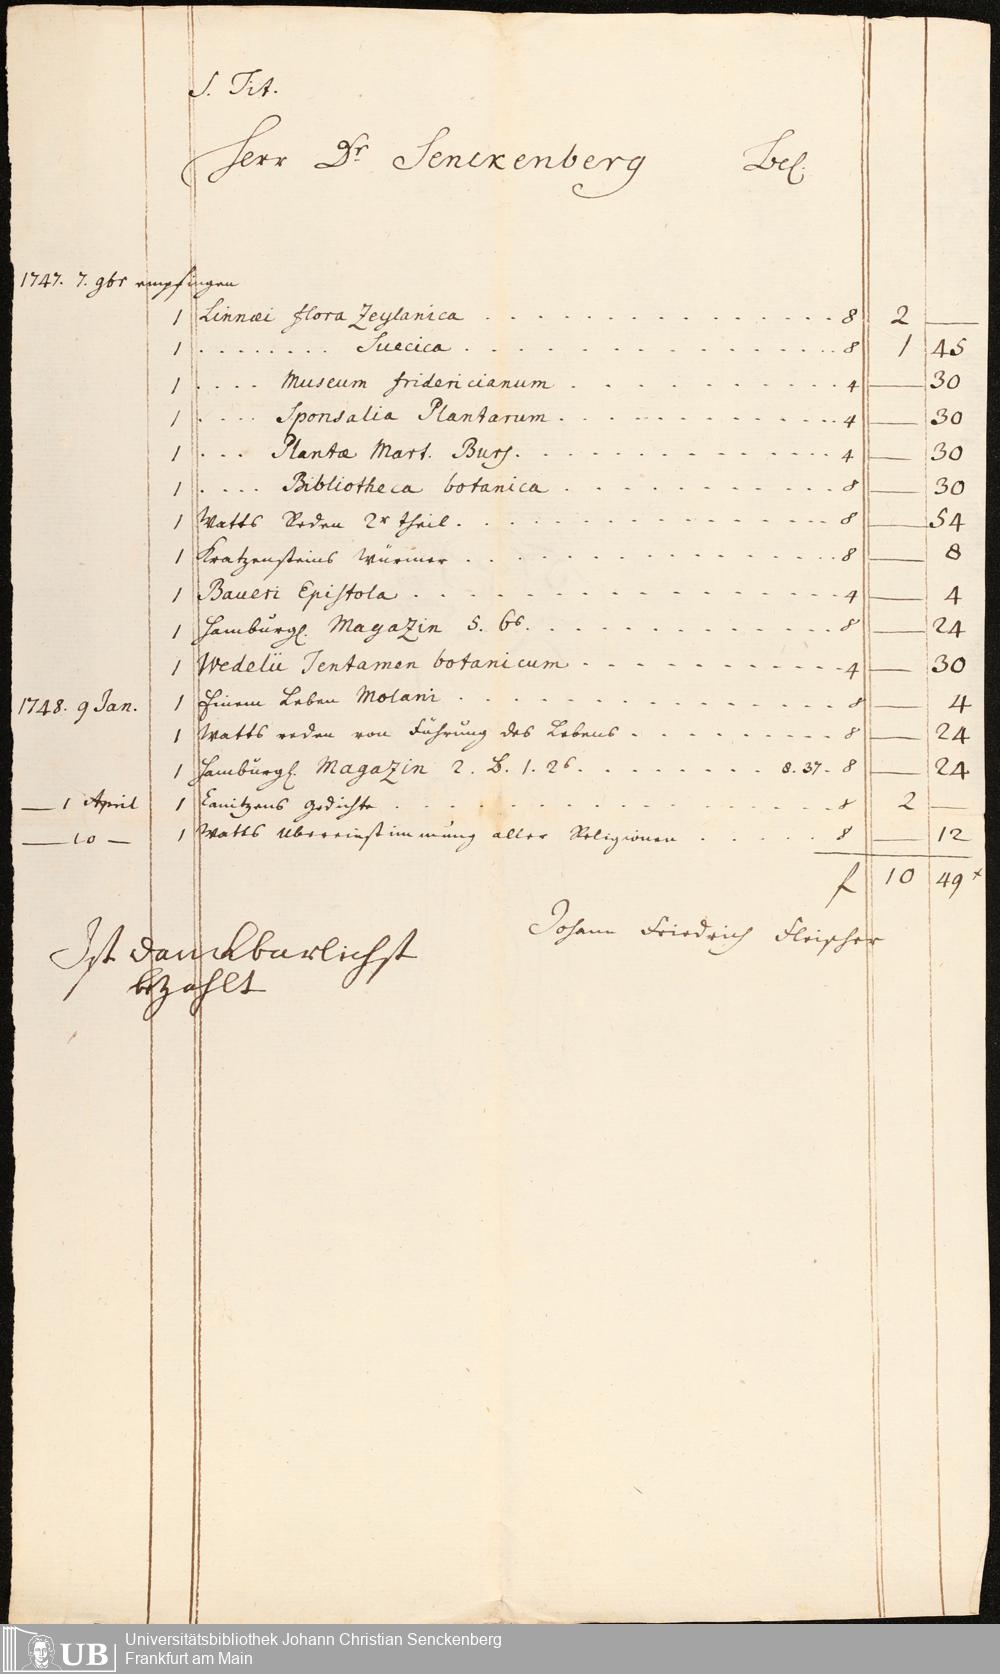 S. Tit.
Herr Dr Senckenberg Bel.
1747. 7. 9br empfingen
1 Linnæi flora Zeylanica . . . 8 2 —
1 . . . Suecica . . . 8 1 45
1 . . . Museum fridericianum . . . 4 — 30
1 . . . Sponsalia Plantarum . . . 4 — 30
1 . . . Plantæ Mart. Burs. . . . 4 — 30
1 . . . Bibliotheca botanica . . . 8 — 30
1 Watts Reden 2r theil . . . 8 — 54
1 Kratzensteins Würmer . . . 8 — 8
1 Baueri Epistola . . . 4 — 4
1 Hamburg. Magazin 5. 6s . . . 8 — 24
1 Wedelii Tentamen botanicum . . . 4 — 30
1748. 9 Jan. 1 Leben Molani . . . 8 — 4
1 Watts reden von Führung des Lebens . . . 8 — 24
1 Hamburg. Magazin 2. B. 1. 2s . . . 8. 37. 8 — 24
— 1 April 1 Canitzens gedichte . . . 8 2 —
— 10 — 1 Watts Ubereinstimmung aller Religionen . . . 8 — 12
f 10 49 x
Johann Friedrich Fleischer
Ist danckbarlichst
bezahlt
UB
Universitätsbibliothek Johann Christian Senckenberg
Frankfurt am Main